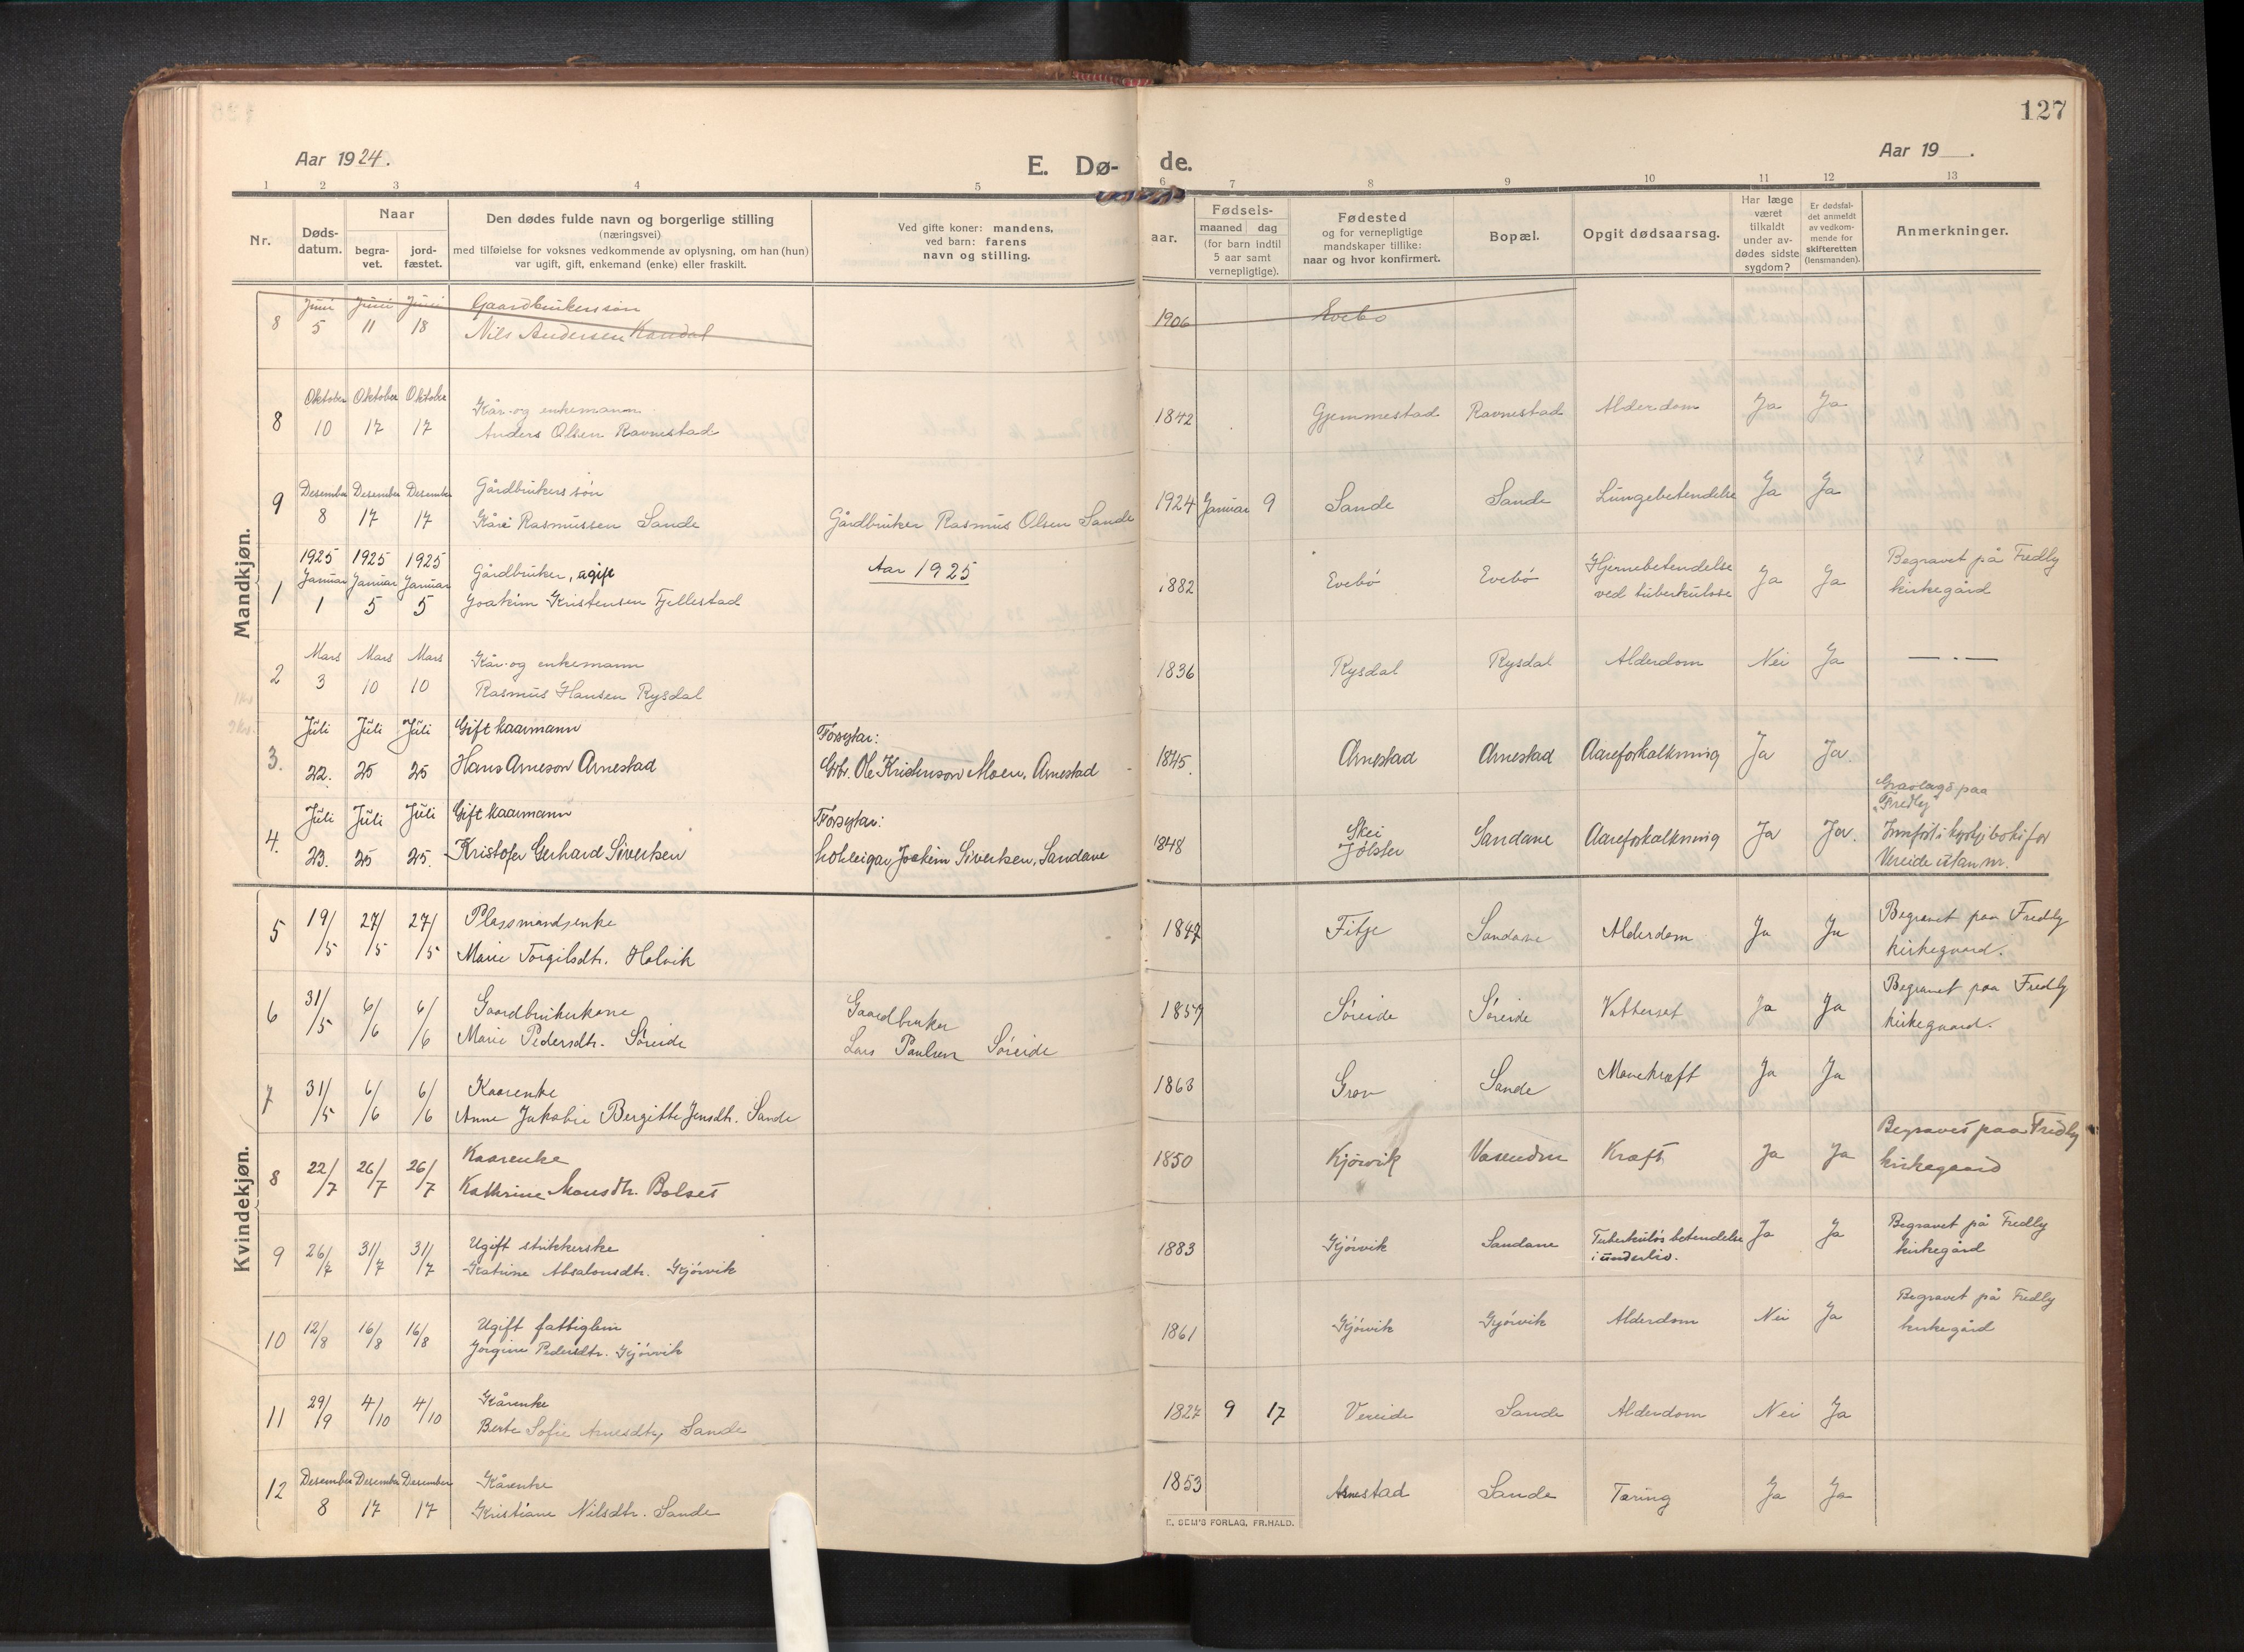 127
Aar 1924.
E. Dø- de.
Aar 19__.
1 2 3 4 5 6 7 8 9 10 11 12 13
Nr.
Døds-
datum.
Naar
begra-
vet.
jord-
fæstet.
Den dødes fulde navn og borgerlige stilling
(næringsvei)
med tilføielse for voksnes vedkommende av oplysning, om han (hun)
var ugift, gift, enkemand (enke) eller fraskilt.
Ved gifte koner: mandens,
ved barn: farens
navn og stilling.
aar.
Fødsels-
maaned dag
(for barn indtil
5 aar samt
vernepligtige).
Fødested
og for vernepligtige
mandskaper tillike:
naar og hvor konfirmert.
Bopæl.
Opgit dødsaarsag.
Har læge
været
tilkaldt
under av-
dødes sidste
sygdom?
Er dødsfal-
det anmeldt
av vedkom-
mende for
skifteretten
(lensmanden).
Anmerkninger.
Mandkjøn.
Juni Juni Juni Gaardbrukersøn
8 5 11 18 Nils Andersen Kandal 1906 Evebø
Oktober Oktober Oktober Kår- og enkemann
8 10 17 17 Anders Olsen Ravnestad 1842 Gjemmestad Ravnestad Alderdom Ja Ja
Desember Desember Desember Gårdbrukers søn
9 8 17 17 Kåre Rasmussen Sande Gårdbruker Rasmus Olsen Sande 1924 Januar 9 Sande Sande Lungebetendelse Ja Ja
1925 1925 1925 Aar 1925
Januar Januar Januar Gårdbruker, ugift Hjernebetendelse Begravet på Fredly
1 1 5 5 Joakim Kristensen Fjellestad 1882 Evebø Evebø ved tuberkulose Ja Ja kirkegård
Mars Mars Mars Kår- og enkemann
2 3 10 10 Rasmus Hansen Rysdal 1836 Rysdal Rysdal Alderdom Nei Ja — . —
Juli Juli Juli Gift kaarmann Forsytar:
3. 22. 25 25 Hans Arneson Arnestad Gbr. Ole Kristenson Moen, Arnestad 1845. Arnestad Arnestad Aareforkalkning Ja Ja.
Juli Juli Juli Gift kaarmann Forsytar: Gravlagd paa
"Fredly"
4. 23. 25 25. Kristofer Gerhard Sivertsen Joakim Sivertsen, Sandane 1848 Skei Jølster Sandane Aareforkalkning Ja Ja. Innført i kyrkjeboki for
Vereide utan nr.
Kvindekjøn.
Plassmandsenke Begravet paa Fredly
5 19/5 27/5 27/5 Marie Torgilsdtr. Holvik 1847 Fitje Sandane Alderdom Ja Ja kirkegaard.
Gaardbrukerkone Gaardbruker Begravet paa Fredly
6 31/5 6/6 6/6 Marie Pedersdtr. Søreide Lars Paulsen Søreide 1857 Søreide Søreide Vattersot Ja Ja kirkegaard.
Kaarenke
7 31/5 6/6 6/6 Anne Jakobie Bergitte Jensdtr. Sande 1863 Grov Sande Mavekræft Ja Ja
Kaarenke Begravet paa Fredly
8 22/7 26/7 26/7 Kathrine Monsdtr. Bolset 1850 Kjørvik Vasenden Kræft Ja Ja kirkegaard
Ugift strikkerske Tuberkuløs betendelse Begravet på Fredly
9 26/7 31/7 31/7 Katrine Absalonsdtr. Gjørvik 1883 Gjørvik Sandane i underliv. Ja Ja kirkegård
Ugift fattiglem Begravet på Fredly
10 12/8 16/8 16/8 Jørgine Pedersdtr. Gjørvik 1861 Gjørvik Gjørvik Alderdom Nei Ja kirkegård
Kårenke
11 29/9 4/10 4/10 Berte Sofie Arnesdtr, Sande 1827 9 17 Vereide Sande Alderdom Nei Ja
Desember Desember Desember Kårenke
12 8 17 17 Kristiane Nilsdtr. Sande 1853 Arnestad Sande Tæring Ja Ja
E. SEM'S FORLAG, FR.HALD.